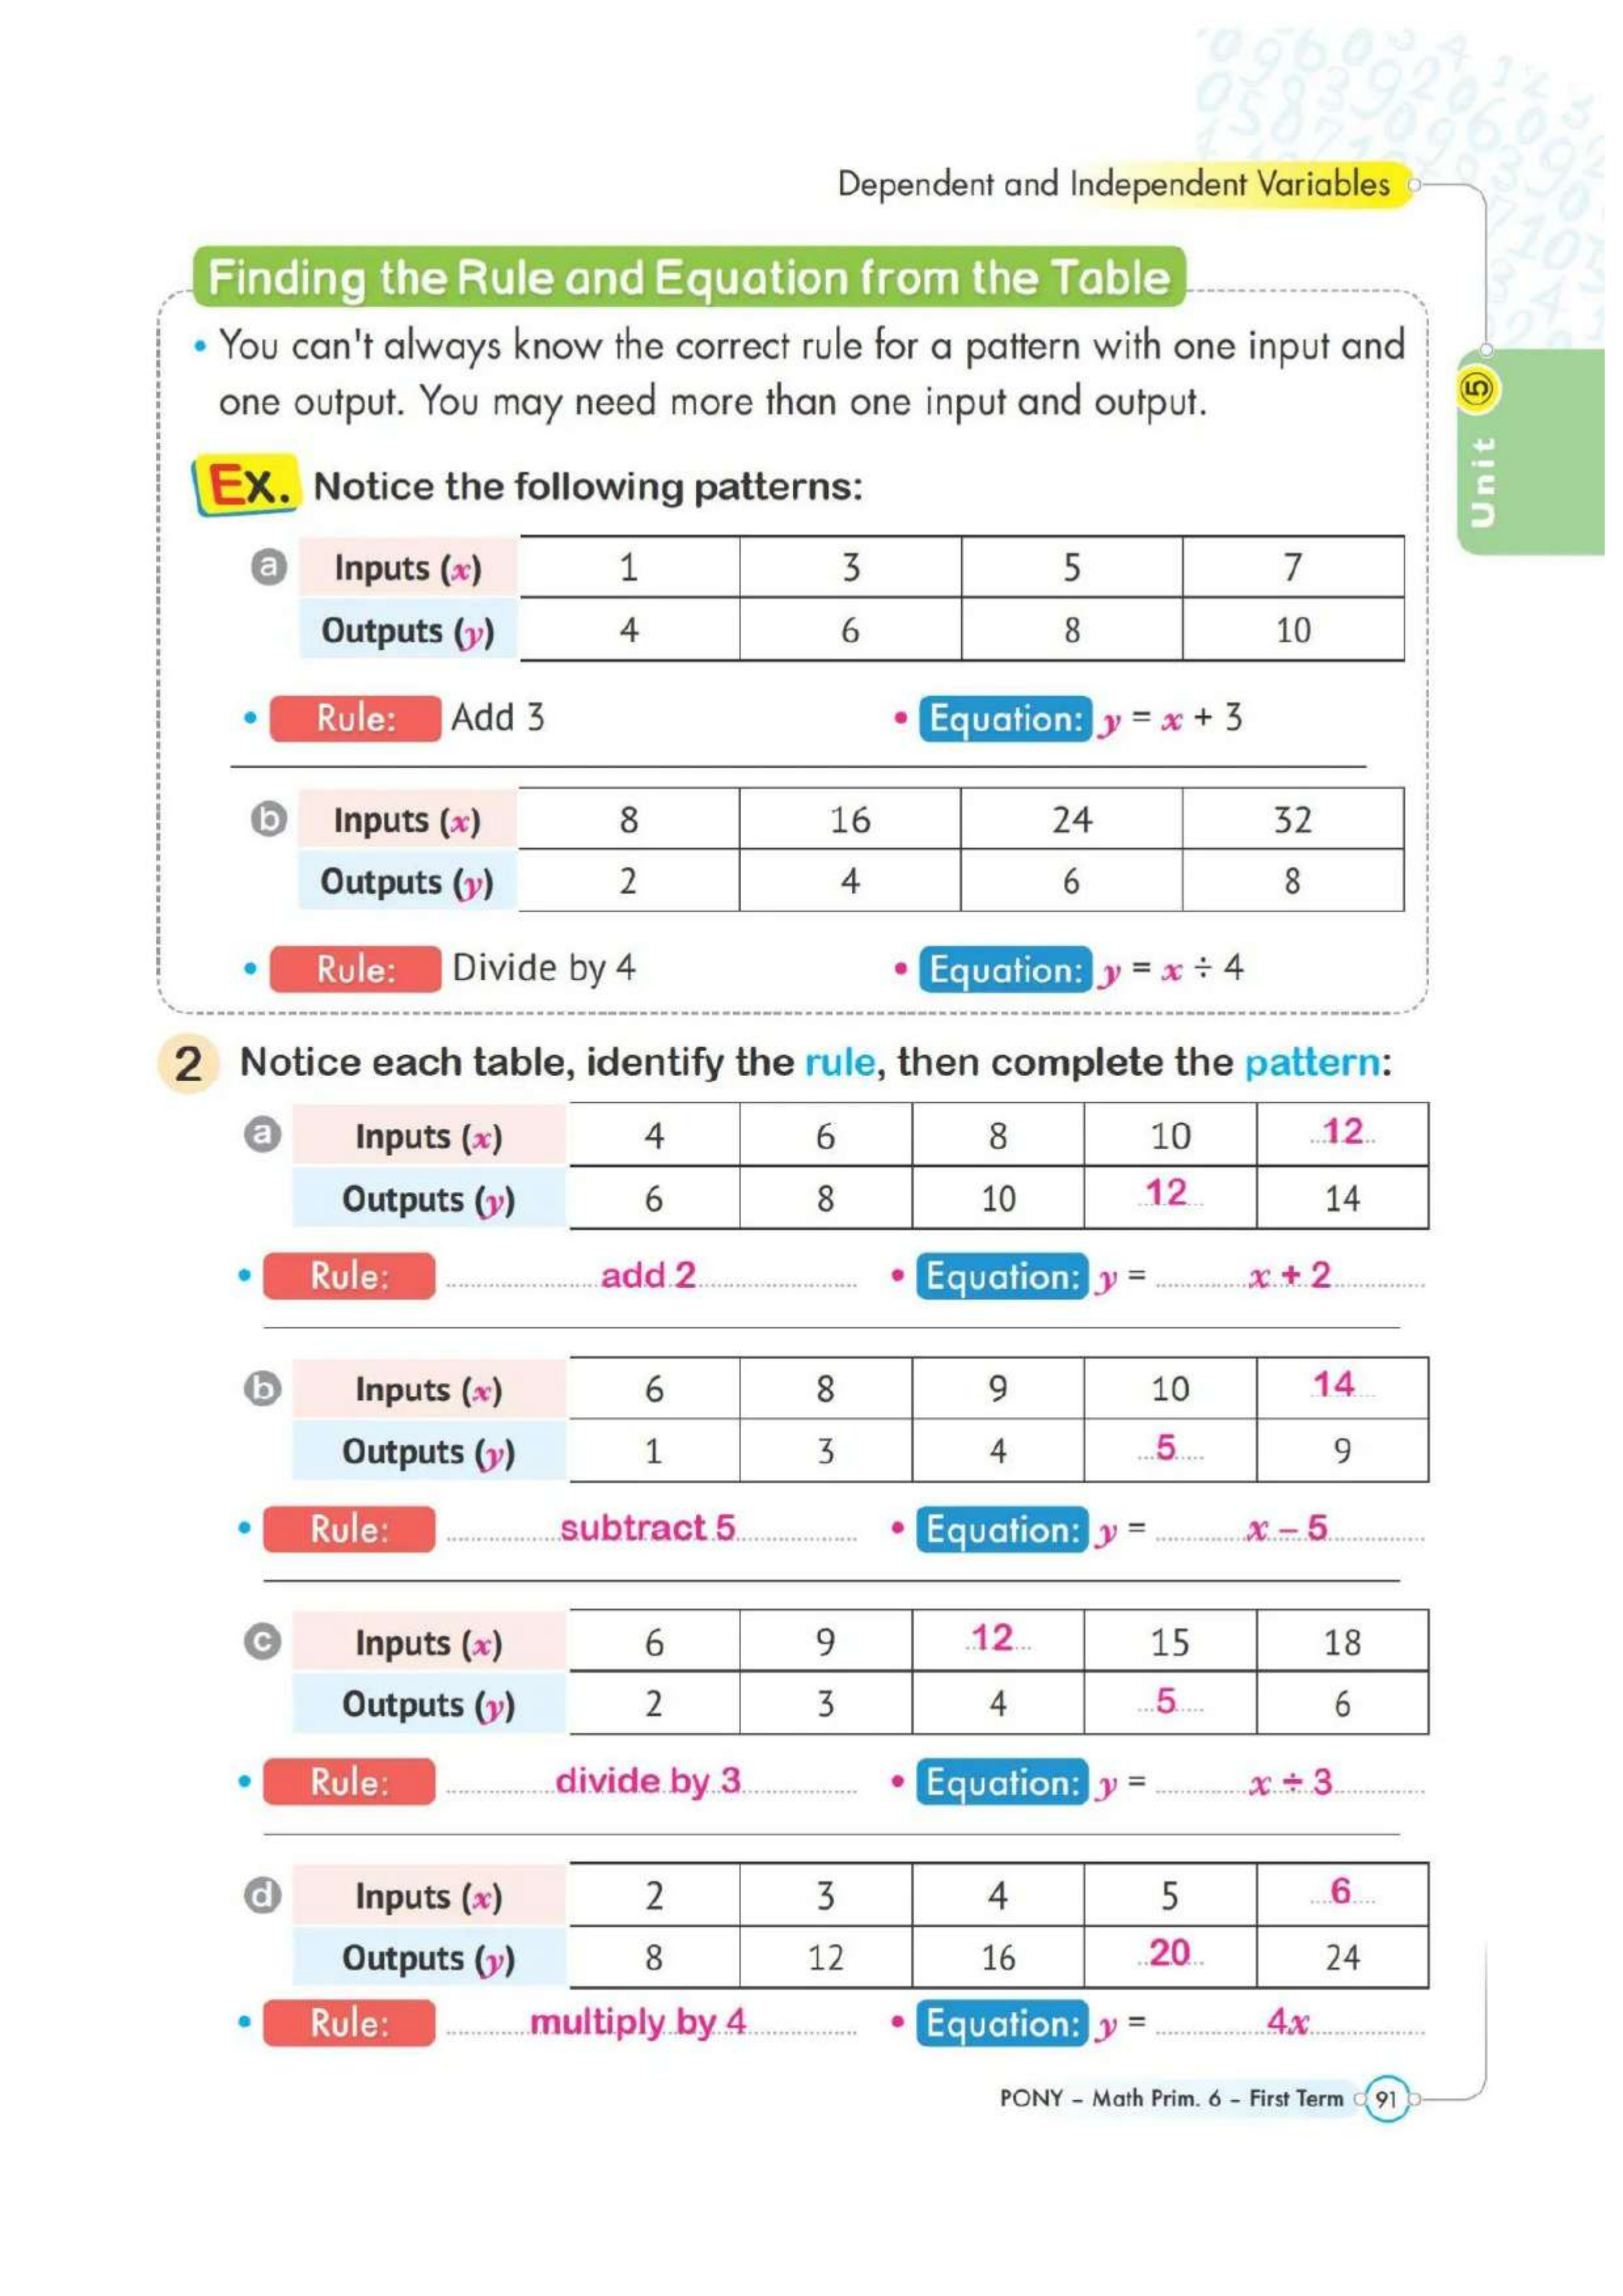 Dependent and Independent Variables
Finding the Rule and Equation from the Table
• You can't always know the correct rule for a pattern with one input and
one output. You may need more than one input and output.
Unit 5
Ex. Notice the following patterns:
a Inputs (x) 1 3 5 7
Outputs (y) 4 6 8 10
• Rule: Add 3 • Equation: y = x + 3
b Inputs (x) 8 16 24 32
Outputs (y) 2 4 6 8
• Rule: Divide by 4 • Equation: y = x ÷ 4
2 Notice each table, identify the rule, then complete the pattern:
a Inputs (x) 4 6 8 10 12
Outputs (y) 6 8 10 12 14
• Rule: add 2 • Equation: y = x + 2
b Inputs (x) 6 8 9 10 14
Outputs (y) 1 3 4 5 9
• Rule: subtract 5 • Equation: y = x – 5
c Inputs (x) 6 9 12 15 18
Outputs (y) 2 3 4 5 6
• Rule: divide by 3 • Equation: y = x ÷ 3
d Inputs (x) 2 3 4 5 6
Outputs (y) 8 12 16 20 24
• Rule: multiply by 4 • Equation: y = 4x
PONY – Math Prim. 6 – First Term 91